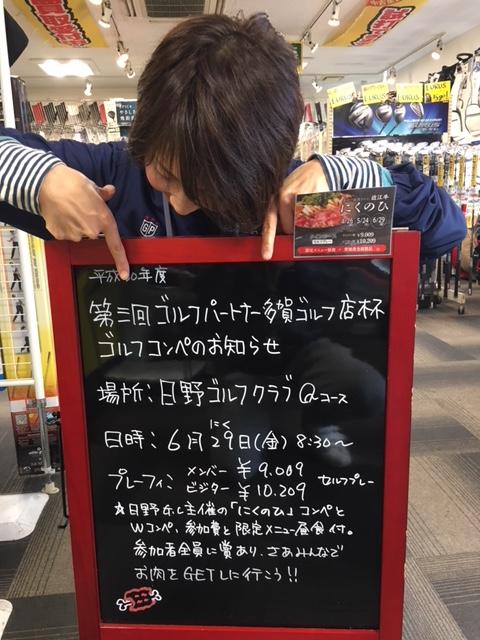 LUKUS
LUKUS
LUKUS
GP
近江牛
にくのひ
4/26 5/24 6/29
¥9,009
¥10,209
平成30年度
第三回ゴルフパートナー多賀ゴルフ店杯
ゴルフコンペのお知らせ
場所：日野ゴルフクラブQコース
にく
日時：6月29日(金) 8:30～
プレーフィ：メンバー ¥9.009 セルフプレー
ビジター ¥10.209
☆日野G.C主催の「にくのひ」コンペと
Wコンペ、参加費と限定メニュー昼食付。
参加者全員に賞あり、さあみんなで
お肉をGETしに行こう!!